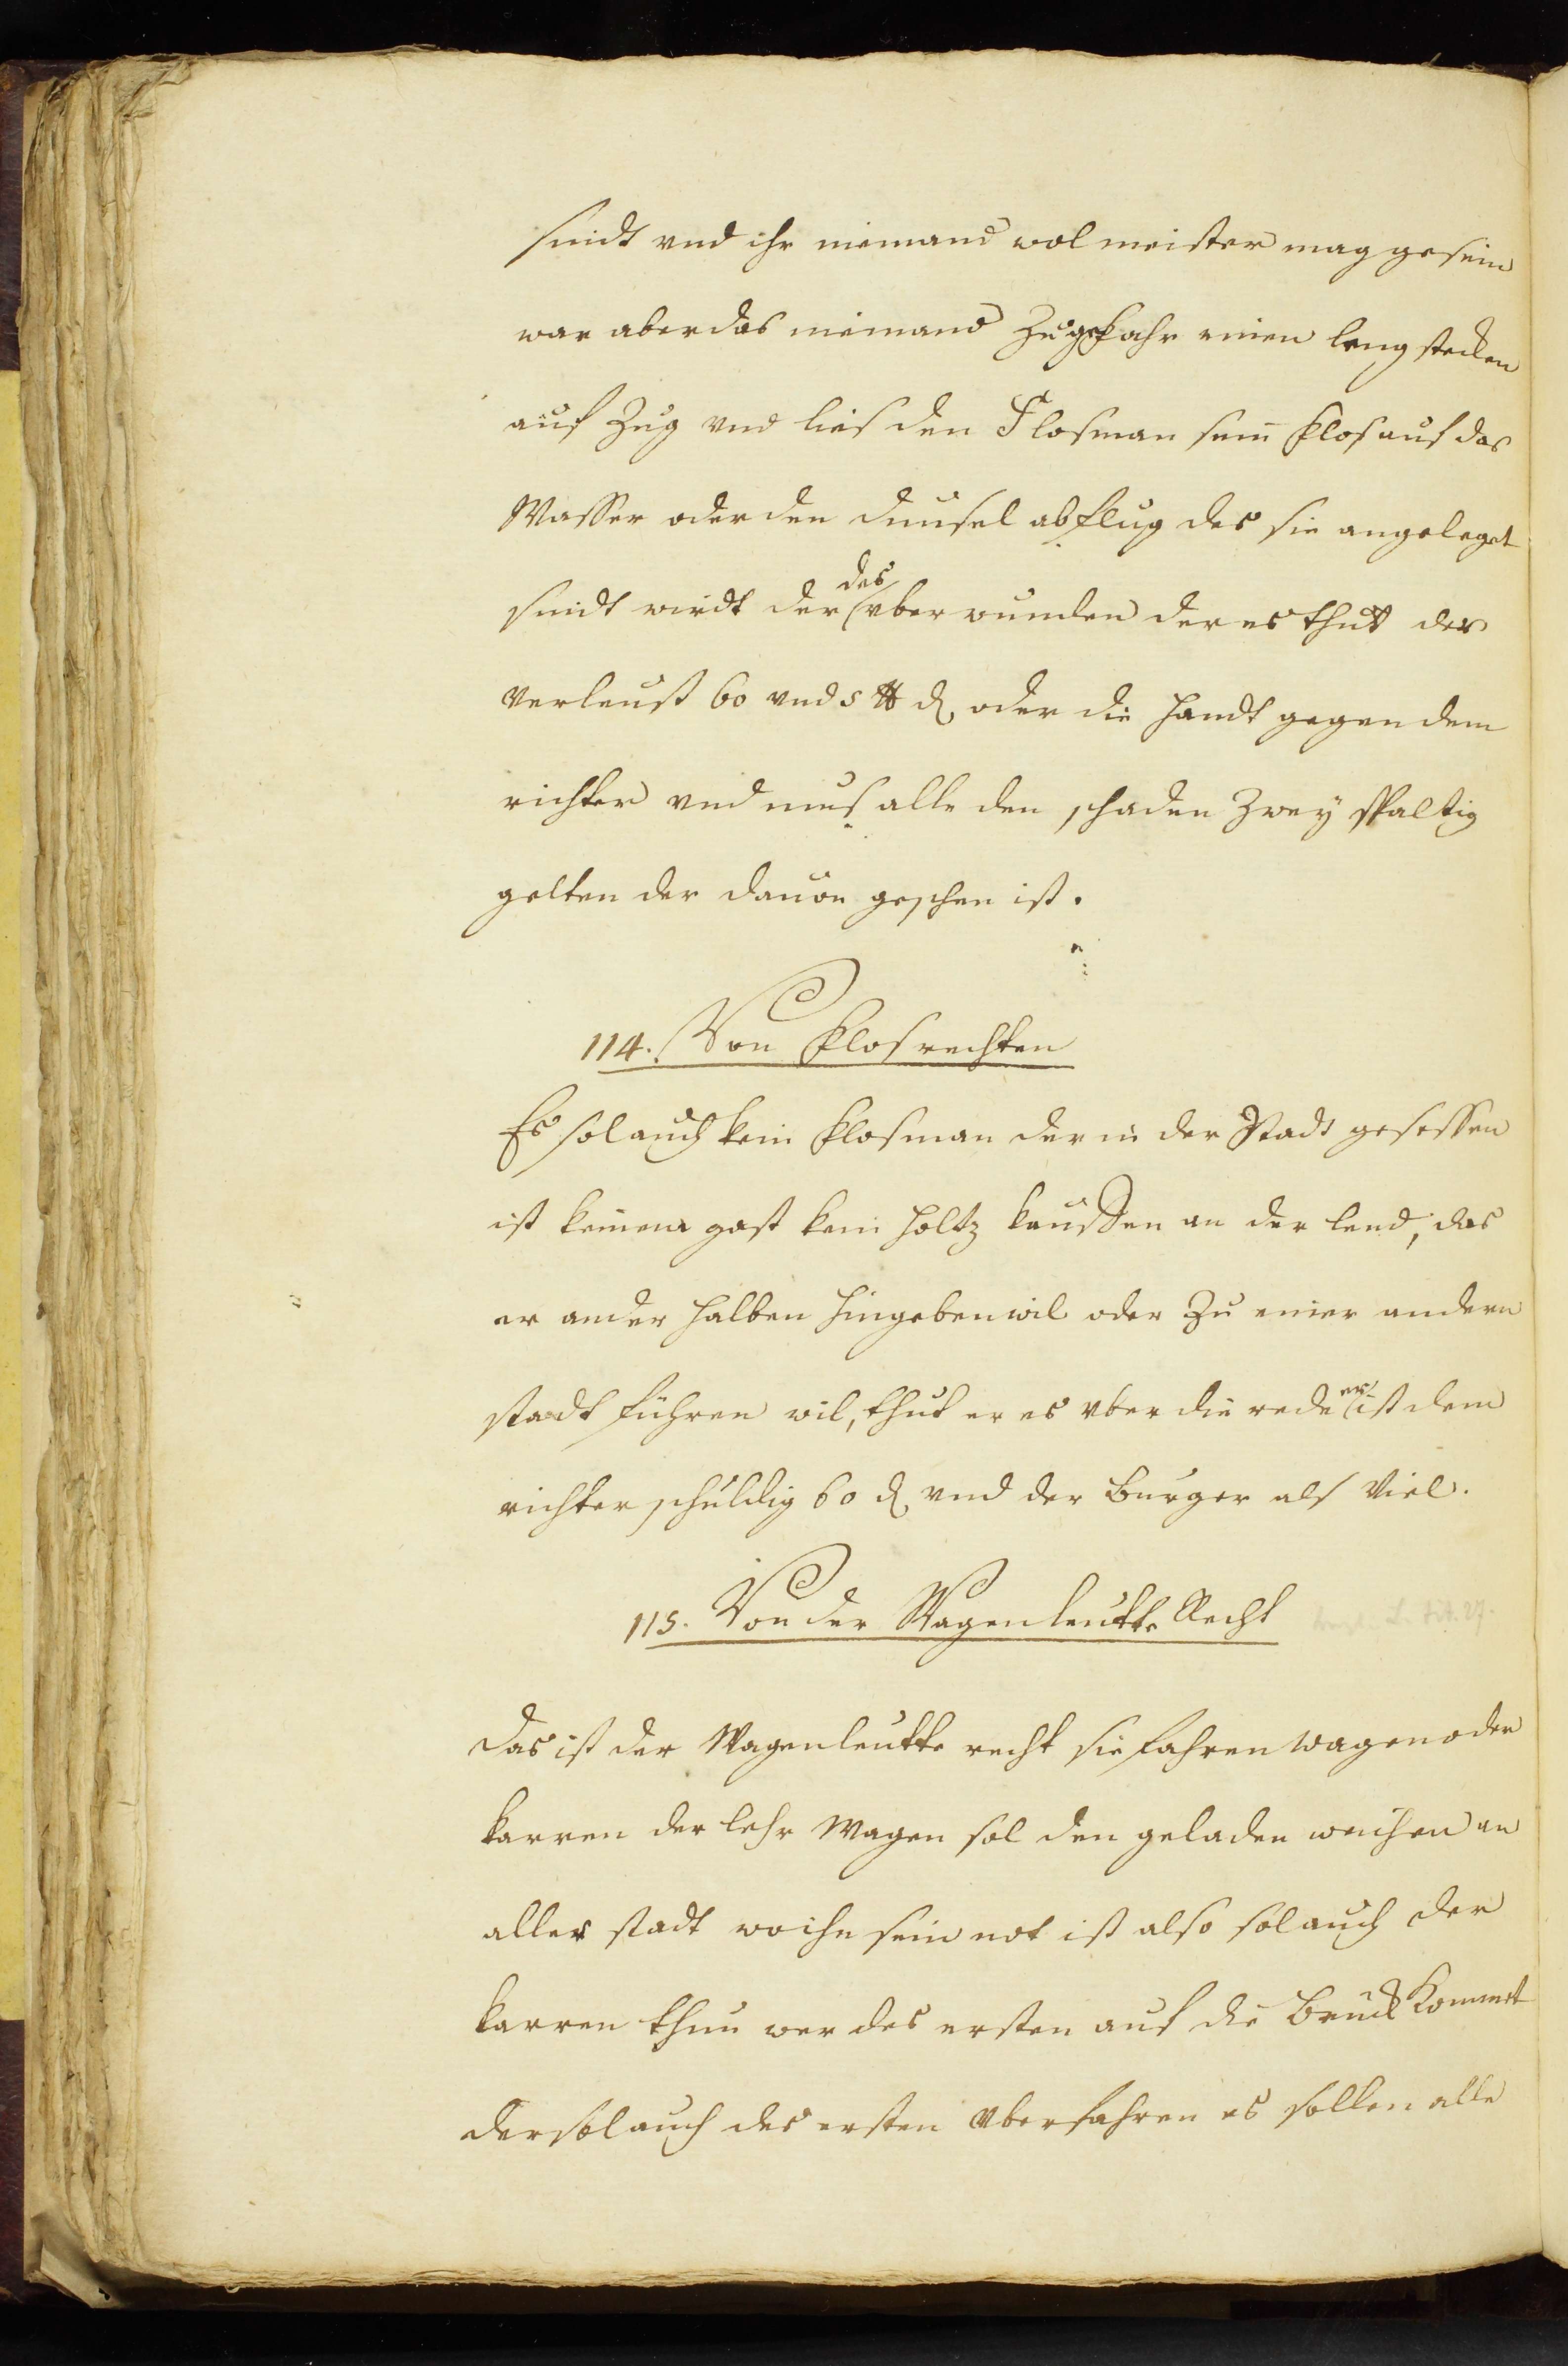 seindt vnd ihr niemand wol meister mag gesein
war aber das niemand zugefahr einen leng stecken
auf zug vnd lies den Flosman sein Flos auf das
Wasser oder den deuxsel abslug des sie angeleget
seindt wirdt der des vberwunden der es thutt der
verleust 60 vnd 5 ℔ ₰ oder die handt gegen dem
richter vnd mus alle den schaden zwey spaltig
gelten der dauon geschen ist.
114. Von Flosrechten
Es sol auch kein Flosman der in der Stadt gesessen
ist keinem gast kein holtz kauffen an der lend, das
er ander halben hingeben wil oder zu einer andern
stadt führen wil, thut er es vber die rede er ist dem
richter schuldig 60 ₰ vnd der burger als viel.
115. Von der Wagenleutte Recht tit. 27.
Das ist der Wagenleutte recht sie fahren wagen oder
karren der lehr Wagen sol den geladen weichen an
aller stadt wo ihn sein not ist also sol auch der
karren thun wer des ersten auf die bruck Kommet
der sol auch des ersten vberfahren es sollen alle